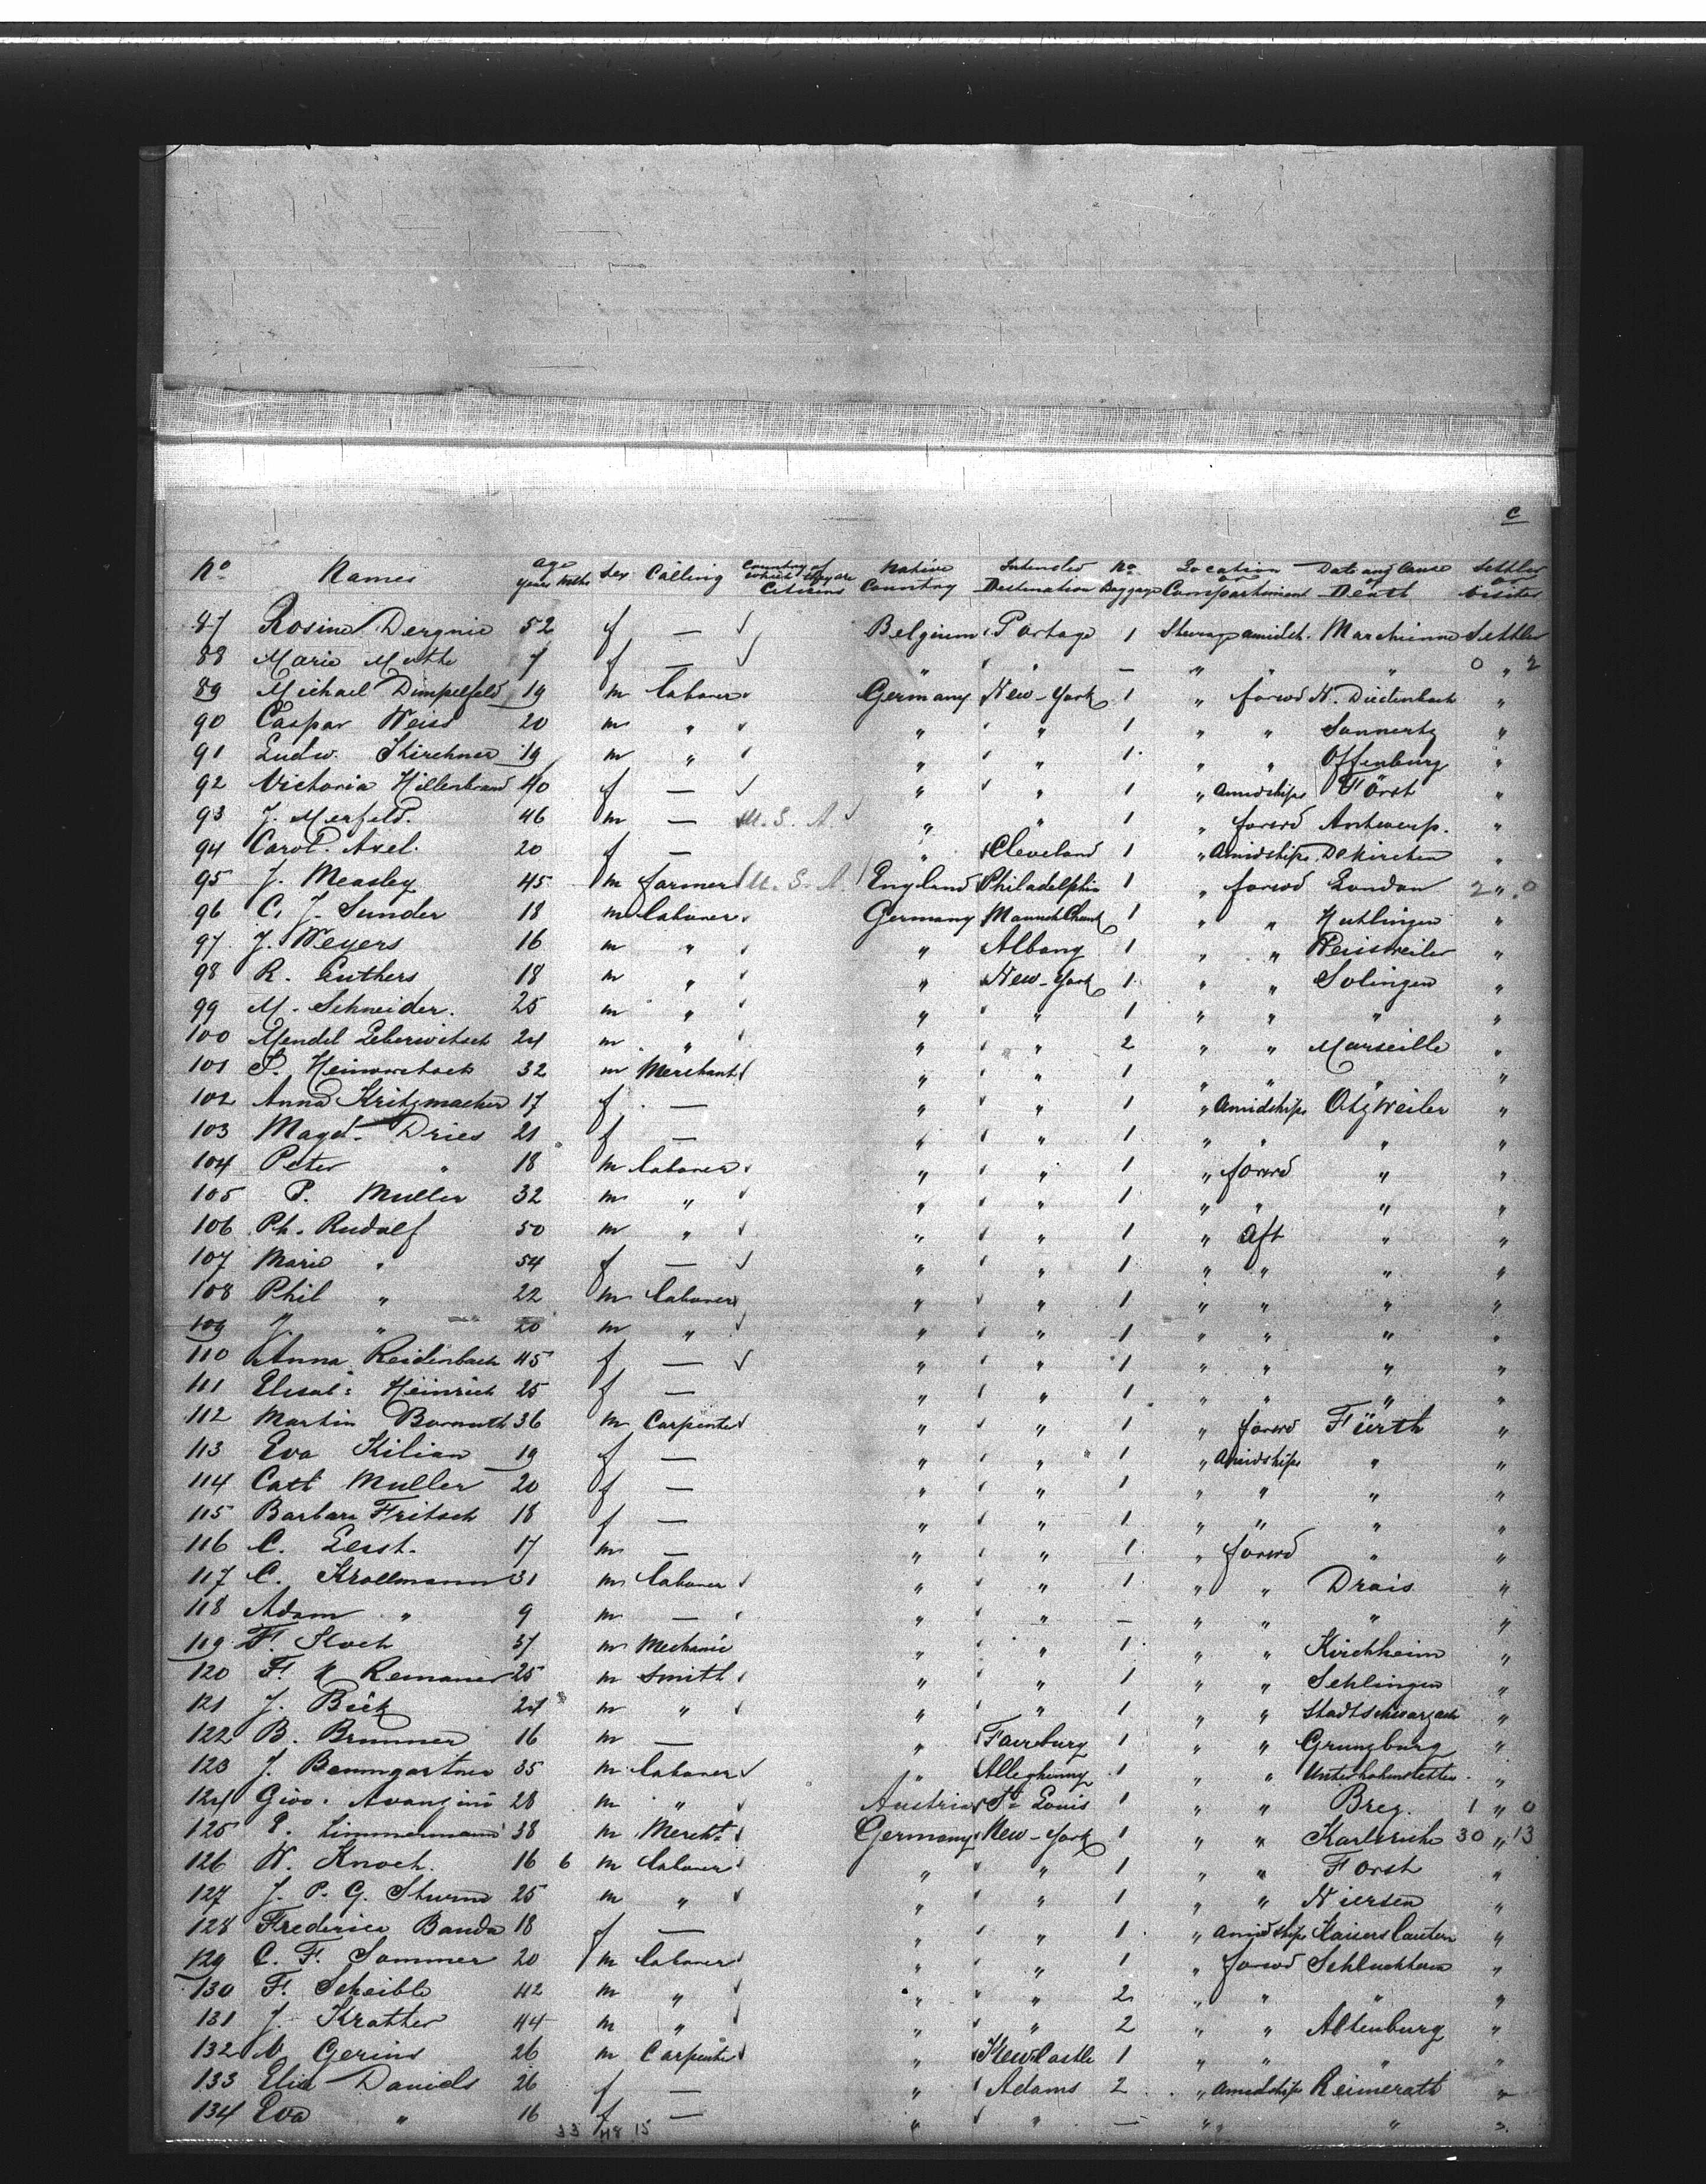 C
No Names Age Years Mths Sex Calling Country of which they are Citizens Native Country Intended Destination No Baggage Location or Compartiment Date and Cause of Death Settler or Visitor
87 Rosine Dergnie 52 f — Belgium Portage 1 amidsh. Settler
88 Marie 7 f — " " — " " " 0 " 2
89 Michael Dimpelfeld 19 m laborer Germany New-York 1 " forwd N. Diedenbach "
90 Caspar Weiss 20 m " " " 1 " " "
91 Ludw. Kirchner 19 m " " " 1 " " Offenburg "
92 Victoria Hillenbrand 40 f — " " 1 " Amidships Först "
93 J. Merfeld. 46 m — U.S.A. " " 1 " forwd Antwerp. "
94 Carol. Axel. 20 f — " Cleveland 1 " Amidships "
95 J. Measley 45 m farmer U.S.A. England Philadelphia 1 " forwd London 2 " 0
96 C. J. Sunder 18 m laborer Germany Mauch Chunk 1 " " "
97 J. Weyers 16 m " " Albany 1 " " Weisweiler "
98 R. Luthers 18 m " " New-York 1 " " Solingen "
99 M. Schneider. 25 m " " " 1 " " " "
100 Mendel Leberwitsch 24 m " " " 2 " " Marseille "
101 S. 32 m Merchant " " 1 " " " "
102 Anna Kritzmacher 17 f — " " 1 " Amidships Otzweiler "
103 Magd. Dries 21 f — " " 1 " " " "
104 Peter " 18 m laborer " " 1 " forwd " "
105 P. Muller 32 m " " " 1 " " " "
106 Ph. Rudolf 50 m " " " 1 " Aft " "
107 Marie " 54 f — " " 1 " " " "
108 Phil " 22 m laborer " " 1 " " " "
109 J. " 20 m " " " 1 " " " "
110 Anna Reidenbach 45 f — " " 1 " " " "
111 Elisab: Heinrich 25 f — " " 1 " " " "
112 Martin Bormuth 36 m Carpenter " " 1 " forwd Fürth "
113 Eva Kilian 19 f — " " 1 " Amidships " "
114 Cath Muller 20 f — " " 1 " " " "
115 Barbara Fritsch 18 f — " " 1 " " " "
116 C. Lerst. 17 m — " " 1 " forwd " "
117 C. Krollmann 31 m laborer " " 1 " " Drais "
118 Adam " 9 m — " " — " " " "
119 F. Koch 37 m Mechanic " " 1 " " Kirchheim "
120 F. K Remaner 25 m Smith " " 1 " " Sehlingen "
121 J. Bick 24 m " " " 1 " " Stadtschwarzach "
122 B. Brunner 16 m — " Fairbury 1 " " Grunzburg "
123 J. Baumgartner 35 m laborer " Allegheny 1 " " "
124 Giov. Avanzini 28 m " Austria St Louis 1 " " Breg. 1 " 0
125 Zimmermann 38 m Mercht. Germany New-York 1 " " Karlsruhe 30 " 13
126 W. Knoch. 16 6 m laborer " " 1 " " Forst "
127 J. P. G. Sturm 25 m " " " 1 " " Viersen "
128 Frederica Banda 18 f — " " 1 " Amidships Kaiserslautern "
129 C. F. Sommer 20 m laborer " " 1 " forwd "
130 F. Scheible 42 m " " " 2 " " " "
131 J. Kratter 44 m " " " 2 " " Altenburg "
132 26 m Carpenter " New Castle 1 " " " "
133 Elia Daniels 26 f — " Adams 2 " Amidships Reimerath "
134 Eva " 16 f — " " — " " " "
33 48 15